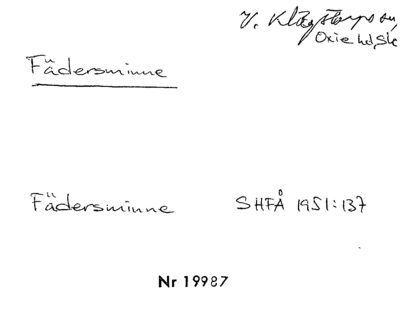 V. Klagstorps sn,
Oxie hd, Sk
Fädersminne
Fädersminne SHFÅ 1951:137
Nr 19987